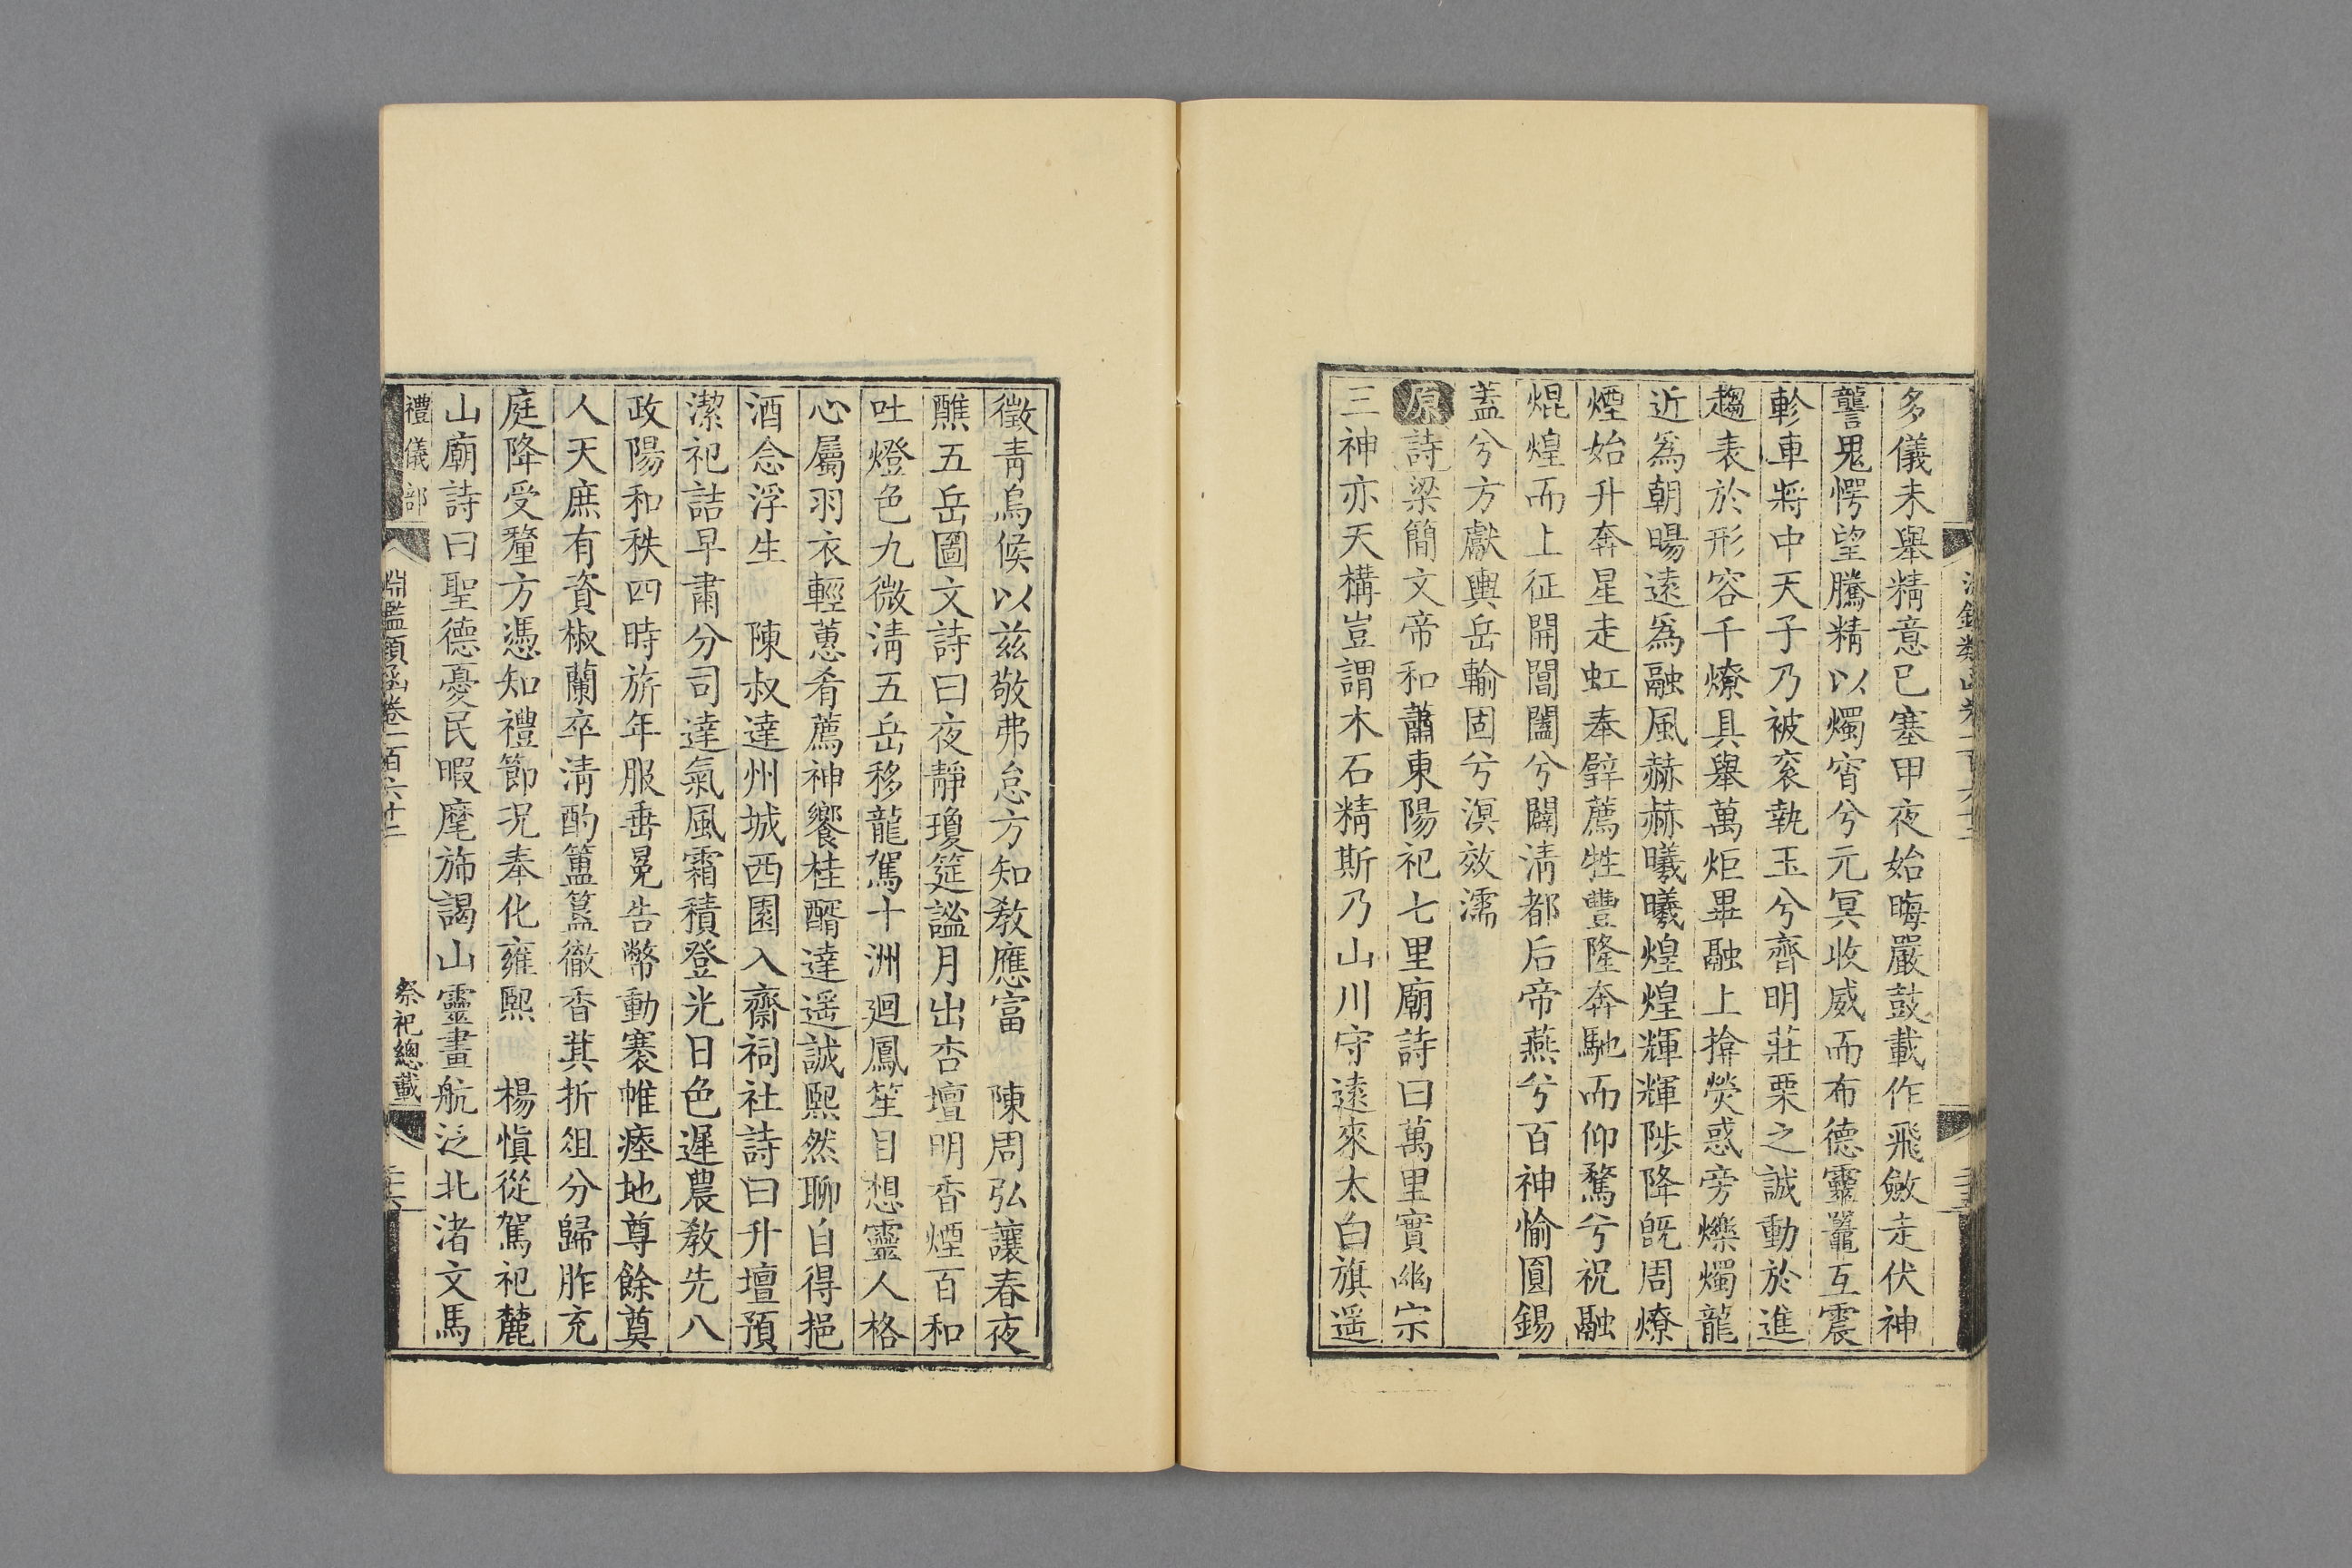 多儀未舉精意已塞甲夜始晦嚴鼓載作飛斂走伏神
讋鬼愕望騰精以燭宵兮元冥收威而布德靈鼉互震
軫車將中天子乃被衮執玉兮齊明莊栗之誠動於進
趨表於形容千燎具舉萬炬畢融上揜熒惑旁爍燭龍
近爲朝暘遠爲融風赫赫曦曦煌煌輝輝陟降旣周燎
煙始升奔星走虹奉璧薦牲豐隆奔馳而仰騖兮祝融
焜煌而上征開閶闔兮闢淸都后帝燕兮百神愉圓錫
蓋兮方獻輿岳輸固兮溟效濡
原詩梁簡文帝和蕭東陽祀七里廟詩曰萬里實幽宗
三神亦天構豈謂木石精斯乃山川守遠來太白旗遥
徵靑鳥候以兹敬弗怠方知敎應富 陳周弘讓春夜
醮五岳圖文詩曰夜靜瓊筵謐月出杏壇明香煙百和
吐燈色九微淸五岳移龍駕十洲迴鳳笙目想靈人格
心屬羽衣輕蕙肴薦神饗桂醑達遥誠熙然聊自得挹
酒念浮生 陳叔達州城西園入齋祠社詩曰升壇預
潔祀詰早肅分司達氣風霜積登光日色遲農敎先八
政陽和秩四時旂年服垂冕告幣動褰帷瘞地尊餘奠
人天庶有資椒蘭卒淸酌簠簋徹香萁折俎分歸胙充
庭降受釐方憑知禮節況奉化雍熙 楊愼從駕祀麓
山廟詩曰聖德憂民暇麾斾謁山靈畫航泛北渚文馬
禮儀部 淵鑑類函卷一百六十二 祭祀總載 二十六